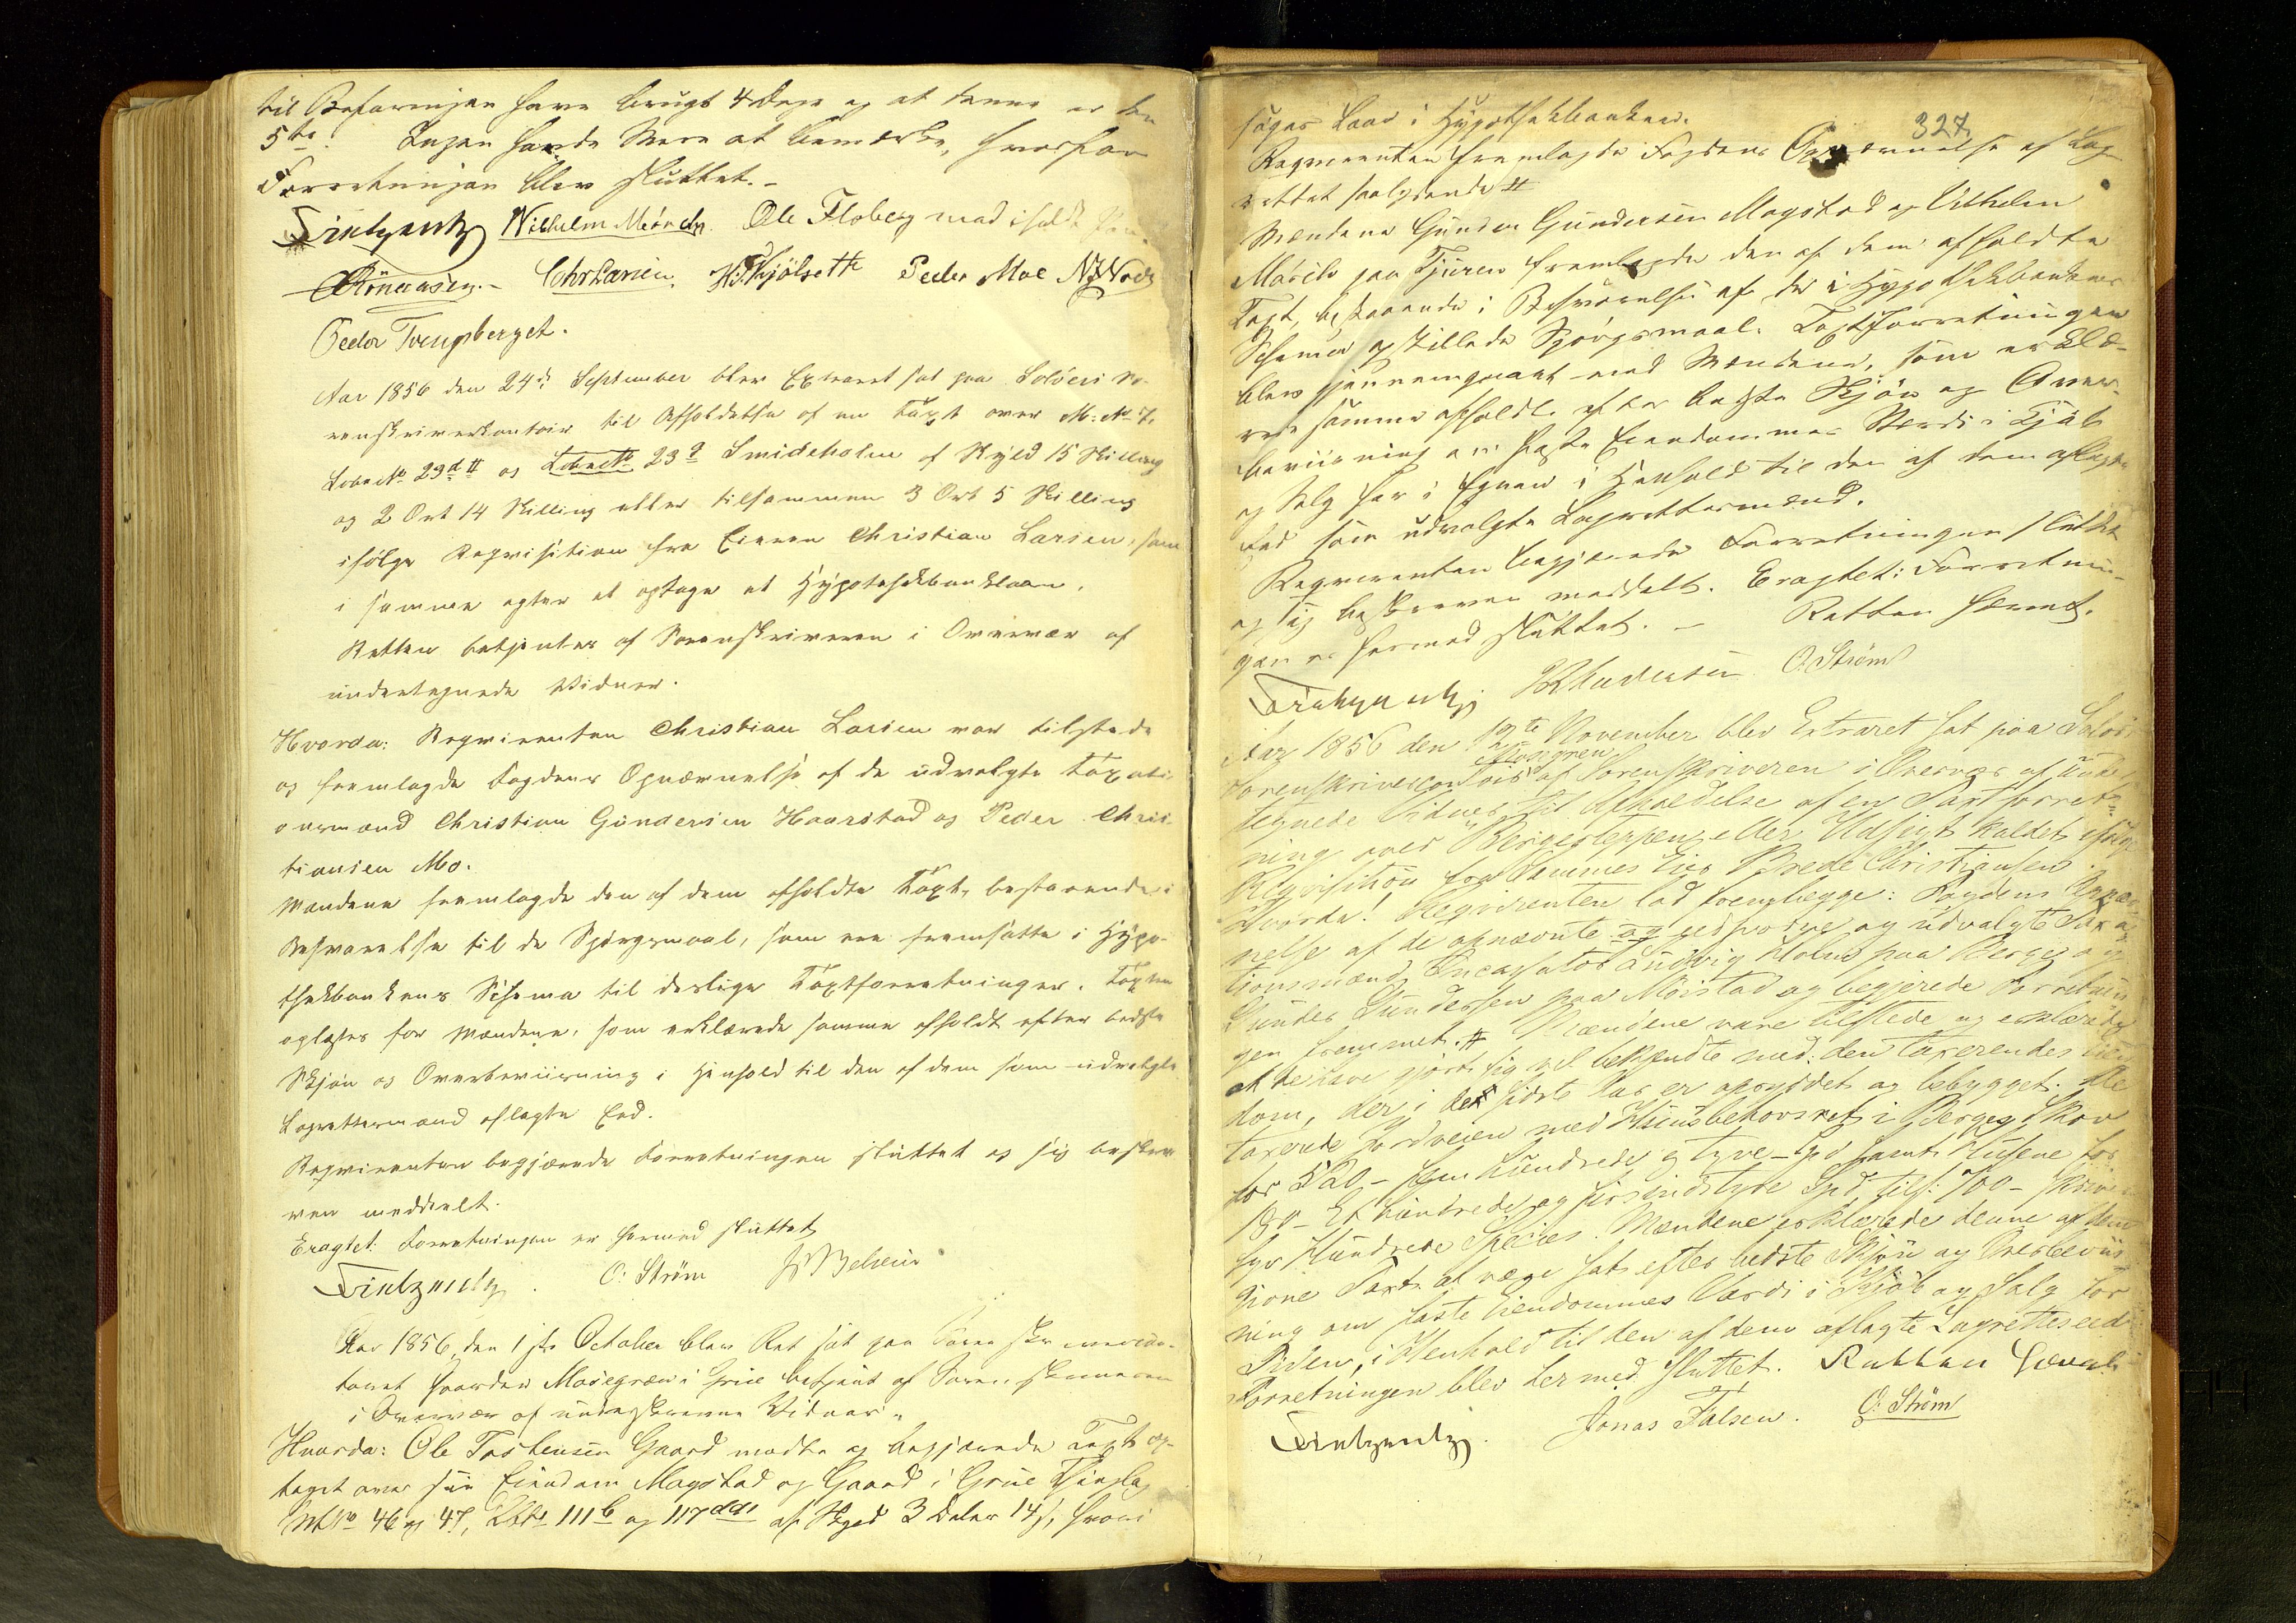 til Befaringen have brugt 4 Dage og at denne er den
5te. Ingen havde Mere at bemærke, hvorfor
Forretningen blev sluttet.-
Wilhelm Mørch. Ole Floberg med iholdt Pen
Chr Larsen. H. Kjölsette Peder Moe
Peder Tvengsberget.
Aar 1856 den 24de September blev Extraret sat paa Solöers So-
renskriverkontoir til Afholdelse af en Taxt over M: No 7.
Lobe No 23d# og Lobe No 23a Smideholm af Skyld 15 Skilling
og 2 Ort 14 Skilling eller tilsammen 3 Ort 5 Skilling
ifølge Reqvisition fra Eieren Christian Larsen, som
i samme agter at optage et Hypothekbanklaan.
Retten betjentes af Sorenskriveren i Overvær af
undertegnede Vidner.
Hvorda: Reqvirenten Christian Larsen var tilstede
og fremlagde Fogdens Opnævnelse af de udvalgte Taxati-
onsmænd Christian Gundersen Haarstad og Peder Chris-
tiansen Mo.
Mændene fremlagde den af dem afholdte Taxt, bestaaende i
Besvarelse til de Spörgsmaal, som ere fremsatte i Hypo-
thekbankens Schema til deslige Taxtforretninger. Taxten
oplæstes for Mændene, som erklærede samme afholdt efter bedste
Skjön og Overbeviisning i Henhold til den af dem som udvalgte
Lagrettemænd aflagte Eed.
Reqvirenten begjærede Forretningen sluttet og sig beskre-
ven meddeelt.
Eragtet: Forretningen er hermed sluttet
O: Strøm
Aar 1856, den 1ste October blev Ret sat paa Sorenskriverkon-
toret Gaarden Mosegræn i Grue betjent af Sorenskriveren
i Overvær af underskrevne Vidner.
Hvorda: Ole Torstensen Gaard mødte og begjærede Taxt op-
taget over sin Eiendom Magstad og Gaard i Grue Thinglag
MNo 46 og 47, LNo 111b og 117 af Skyld 3 Daler 14ß, hvori
327.
søges Laan i Hypothekbanken.
Reqvirenten fremlagde Fogdens Opnævnelse af Lag-
rettet saalydende #
Mændene Gunder Gundersen Magstad og Vilhelm
Mørch paa Tjuren fremlagde den af dem afholdte
Taxt, bestaaende i Besvarelse af de i Hypothekbankens
Schema opstillede Spörgsmaal. Taxtforretningen
blev gjennemgaaet med Mændene, som erklæ-
rede samme afholdt efter bedste Skjön og Over-
beviisning om faste Eiendommes Værdi i Kjöb
og Salg her i Egnen i Henhold til den af dem aflagte
Eed som udvalgte Lagrettemænd.
Reqvirenten begjærede Forretningen sluttet
og sig beskreven meddelt. Eragtet: Forretnin-
gen er hermed sluttet. - Retten hævet.
O. Strøm
Aar 1856 den 12te November blev Extraret sat paa Solörs
Sorenskrivercontoir af Sorenskriveren i Overvær af under
tegnede Vidner til Afholdelse af en Taxtforret-
ning over Bergesletten eller Udsigt kaldet ifølge
Reqvisition fra Sammes Eier Brede Christiansen.
Hvorda! Reqvirenten lod fremlægge: Fogdens Opnæv-
nelse af de opnævnte og edsvorne og udvalgte Taxa-
tionsmænd Ludvig Holm paa Berger og
Gunder Gundersen paa Moistad og begjerede Forretnin
gen fremmet.# Mændene vare tilstede og erklærede
at de have gjort sig vel bekjendte med den taxerendes Eien
dom, der i de sidste Aar er opryddet og bebygget. De
taxerede Jordveien med Huusbehovsret i Berger Skov
for 520 - fem Hundrede og tyve - Spd samt Husene for
180 - Et hundrede og firsindstyve Spd, tils: 700 - skriver
syv Hundrede Species. Mændene erklærede denne af dem
givne Taxt at være sat efter bedste Skjøn og Overbeviis
ning om faste Eiendommes Værdi i Kjöb og Salg for
Tiden, i Henhold til den af dem aflagte Lagretteseed
Forretningen blev hermed sluttet. Retten hævet.
Jonas Falsen. O: Strøm